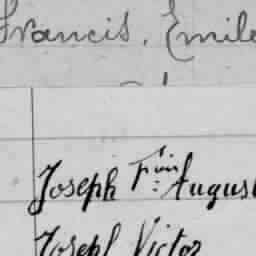 Francis, Emile
Joseph Fˢⁱⁿ: August
Joseph Victor